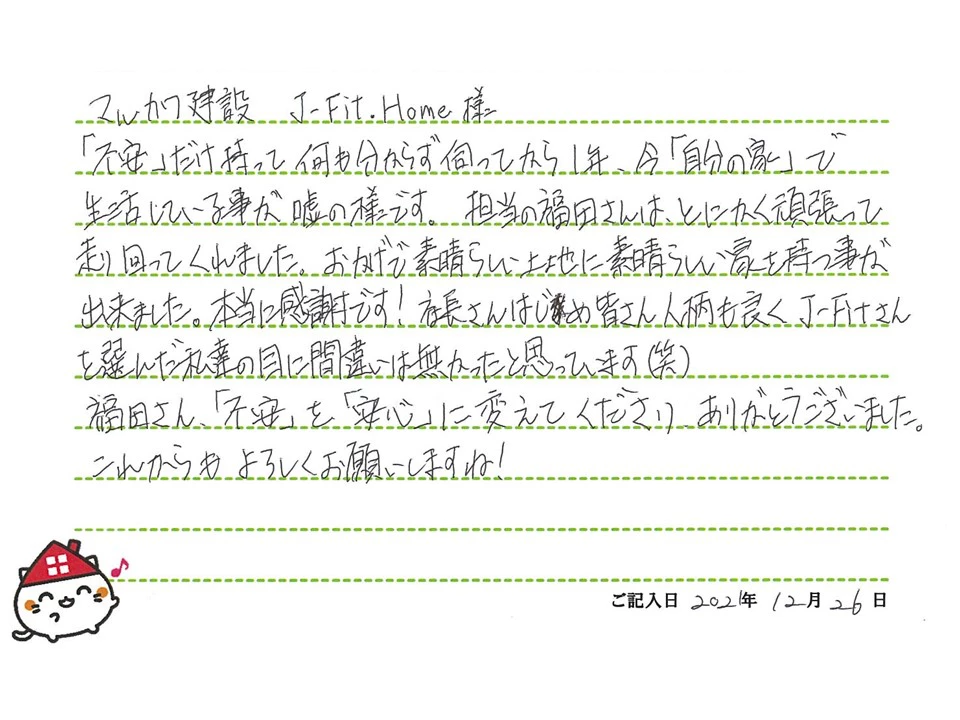 マルカワ建設　J-Fit.Home 様
「不安」だけ持って 何も分からず伺ってから1年、今「自分の家」で
生活している事が 嘘の様です。 担当の福田さんは、とにかく頑張って
走り回ってくれました。おかげで素晴らしい土地に素晴らしい家を持つ事が
出来ました。本当に感謝です！社長さんはじめ皆さん人柄も良く J-Fitさん
を選んだ私達の目に間違いは無かったと思っています(笑)
福田さん、「不安」を「安心」に変えてくださり、ありがとうございました。
これからも よろしくお願いしますね！
ご記入日 2021年 12月 26日